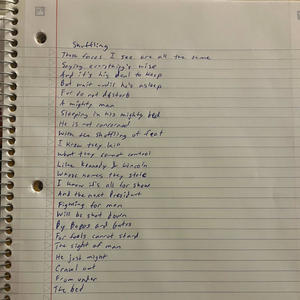 Shuffling
These faces I see are all the same
Saying everything's mise
And it's his deal to keep
But wait until he's asleep
For do not disturb
A mighty man
Sleeping in his mighty bed
He is not concerned
With the shuffling of feet
I know they kill
What they cannot control
Like Kennedy & Lincoln
Whose names they stole
I know it's all for show
And the next President
Fighting for men
Will be shot down
By Boros and Gates
For fools cannot stand
The sight of man
He just might
Crawl out
From under
The bed